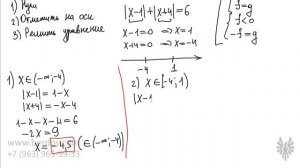 1) Нули
2) Отметить на оси
3) Решить уравнение
|x-1|+|x+4|=6
x-1=0 ⇒ x=1
x+4=0 ⇒ x=-4
-4 1
f=g
f<0
-f=g
1) x∈(-∞;-4)
|x-1|=1-x
|x+4|=-x-4
1-x-x-4=6
-2x=9
x=-4,5 (∈(-∞;-4))
2) x∈[-4;1)
|x-1